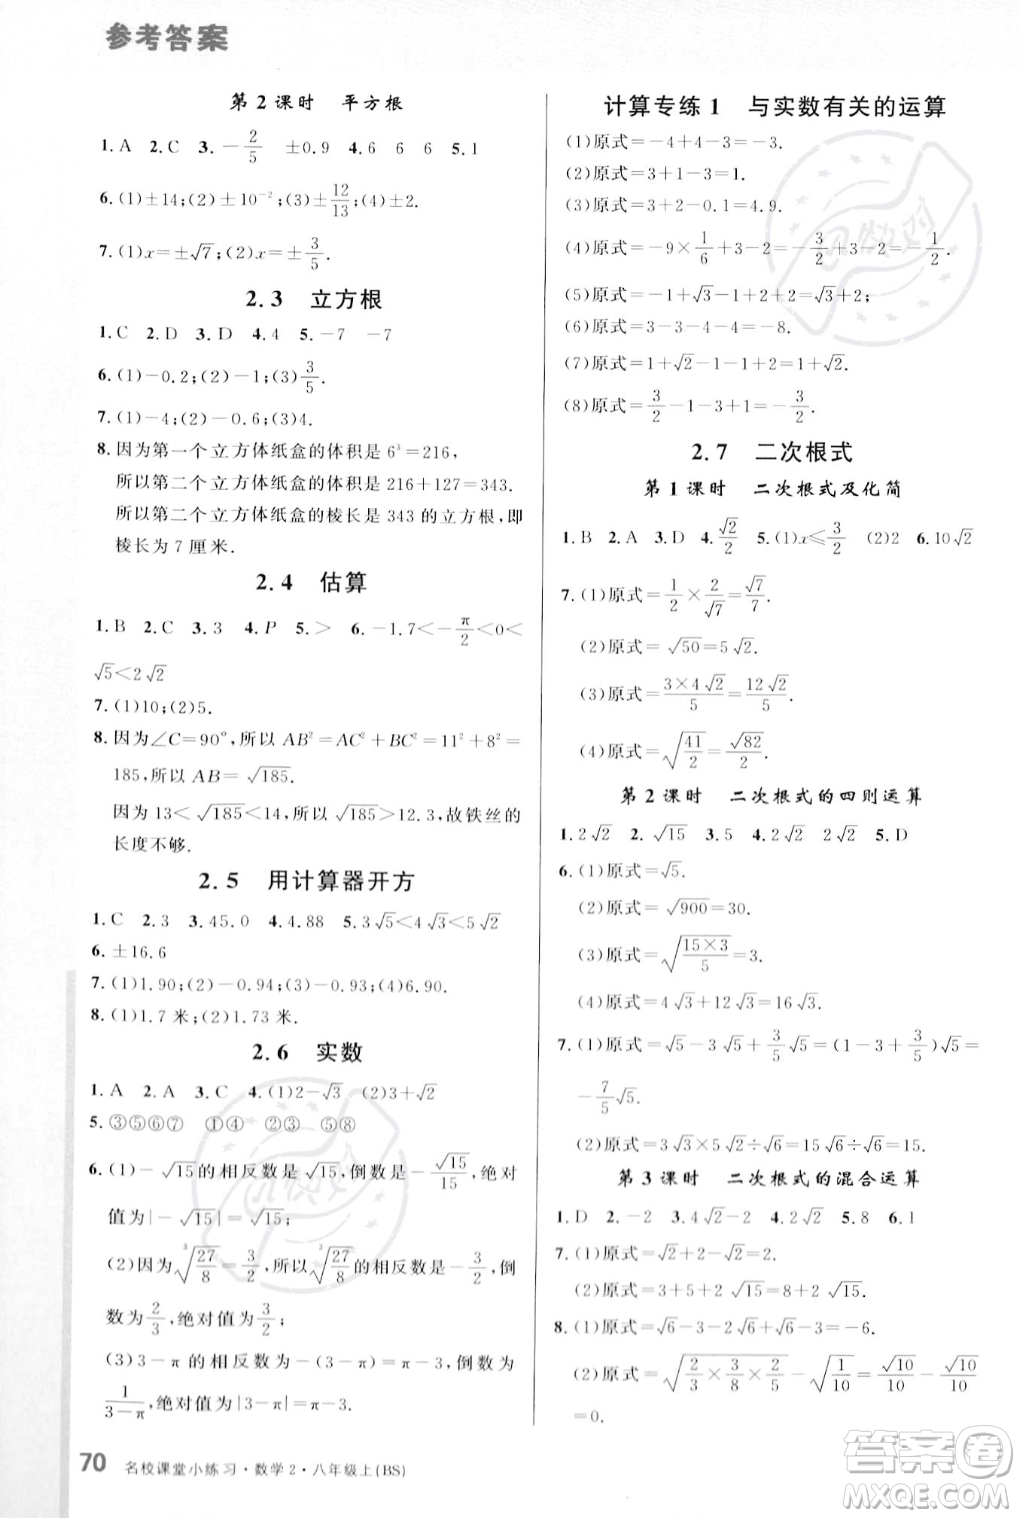 参考答案
第2课时　平方根
1.A　2.C　3.－2/5　±0.9　4.6　6　6　5.1
6.(1)±14;(2)±10⁻²;(3)±12/13;(4)±2.
7.(1)x＝±√7;(2)x＝±3/5.
2.3　立方根
1.C　2.D　3.D　4.4　5.－7　－7
6.(1)－0.2;(2)－1;(3)3/5.
7.(1)－4;(2)－0.6;(3)4.
8.因为第一个立方体纸盒的体积是6³＝216,
所以第二个立方体纸盒的体积是216＋127＝343.
所以第二个立方体纸盒的棱长是343的立方根,即
棱长为7厘米.
2.4　估算
1.B　2.C　3.3　4.P　5.＞　6.－1.7＜－π/2＜0＜
√5＜2√2
7.(1)10;(2)5.
8.因为∠C＝90°,所以AB²＝AC²＋BC²＝11²＋8²＝
185,所以AB＝√185.
因为13＜√185＜14,所以√185＞12.3,故铁丝的
长度不够.
2.5　用计算器开方
1.C　2.3　3.45.0　4.4.88　5.3√6＜4√3＜5√2
6.±16.6
7.(1)1.90;(2)－0.94;(3)－0.93;(4)6.90.
8.(1)1.7米;(2)1.73米.
2.6　实数
1.A　2.A　3.C　4.(1)2－√3　(2)3＋√2
5.③⑤⑥⑦　①④　②③　⑤⑧
6.(1)－√15的相反数是√15,倒数是－√15/15,绝对
值为|－√15|＝√15;
(2)因为³√(27/8)＝3/2,所以³√(27/8)的相反数是－3/2,倒
数为2/3,绝对值为3/2;
(3)3－π的相反数为－(3－π)＝π－3,倒数为
1/(3－π),绝对值为|3－π|＝π－3.
70　名校课堂小练习·数学2·八年级上(BS)
计算专练1　与实数有关的运算
(1)原式＝－4＋4－3＝－3.
(2)原式＝3＋1－3＝1.
(3)原式＝3＋2－0.1＝4.9.
(4)原式＝－9×1/6＋3－2＝－3/2＋3－2＝－1/2.
(5)原式＝1＋√3－1＋2＋2＝√3＋4;
(6)原式＝－8＋4－4＝－8.
(7)原式＝1＋√2－1＋4＝√2＋4.
(8)原式＝3/2－1－3＋1＝－3/2.
2.7　二次根式
第1课时　二次根式及化简
1.B　2.A　3.D　4.√2/2　5.(1)x≤3/2　(2)2　6.10√2
7.(1)原式＝1/2×2/√7＝√7/7.
(2)原式＝√50＝5√2.
(3)原式＝3×4√2/5＝12√2/5.
(4)原式＝√(41/2)＝√82/2.
第2课时　二次根式的四则运算
1.2√2　2.√15　3.5　4.4√2　2√2　5.D
6.(1)原式＝√5.
(2)原式＝√900＝30.
(3)原式＝√(15×3/5)＝3.
(4)原式＝4√3＋12√3＝16√3.
7.(1)原式＝√5－3√5＋3/5√5＝(1－3＋3/5)√5＝
－7/5√5.
(2)原式＝3√3×5√2÷√6＝15√6÷√6＝15.
第3课时　二次根式的混合运算
1.D　2.－2　3.4√2－2　4.2√2　5.8　6.1
7.(1)原式＝√2＋2－√2＝2.
(2)原式＝3＋5＋2√15＝8＋2√15.
8.(1)原式＝√6－3－2√6＋√6－3＝－6.
(2)原式＝√(2/3×3/8×2/5)－√(1/10)＝√10/10－√10/10
＝0.
答案圈
MXQE.COM